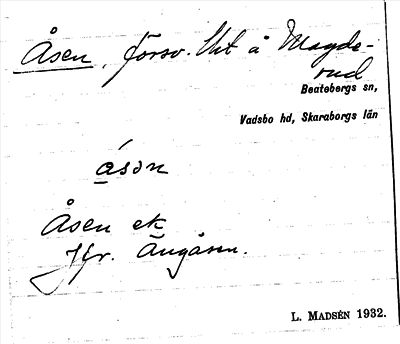 Åsen, försv. Utt å Magde-
rud
Beatebergs sn,
Vadsbo hd, Skaraborgs län
ásən
Åsen ek
Jfr. Ängåsen.
L. MADSÉN 1932.